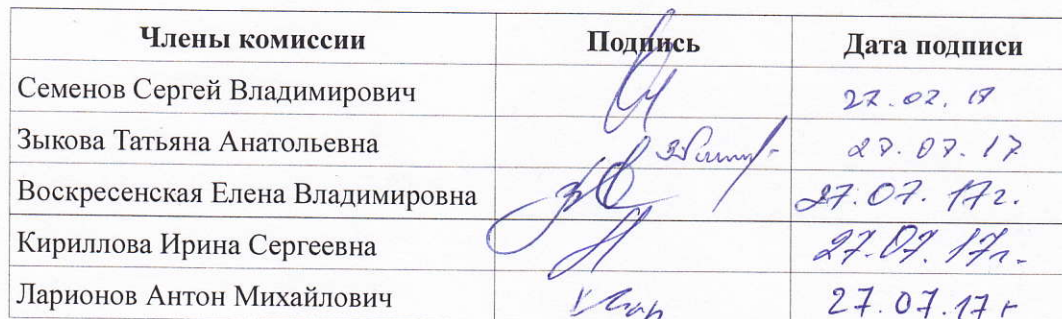 Члены комиссии Подпись Дата подписи
Семенов Сергей Владимирович 27.07.17
Зыкова Татьяна Анатольевна 27.07.17
Воскресенская Елена Владимировна 27.07.17г.
Кириллова Ирина Сергеевна 27.07.17г.
Ларионов Антон Михайлович 27.07.17г